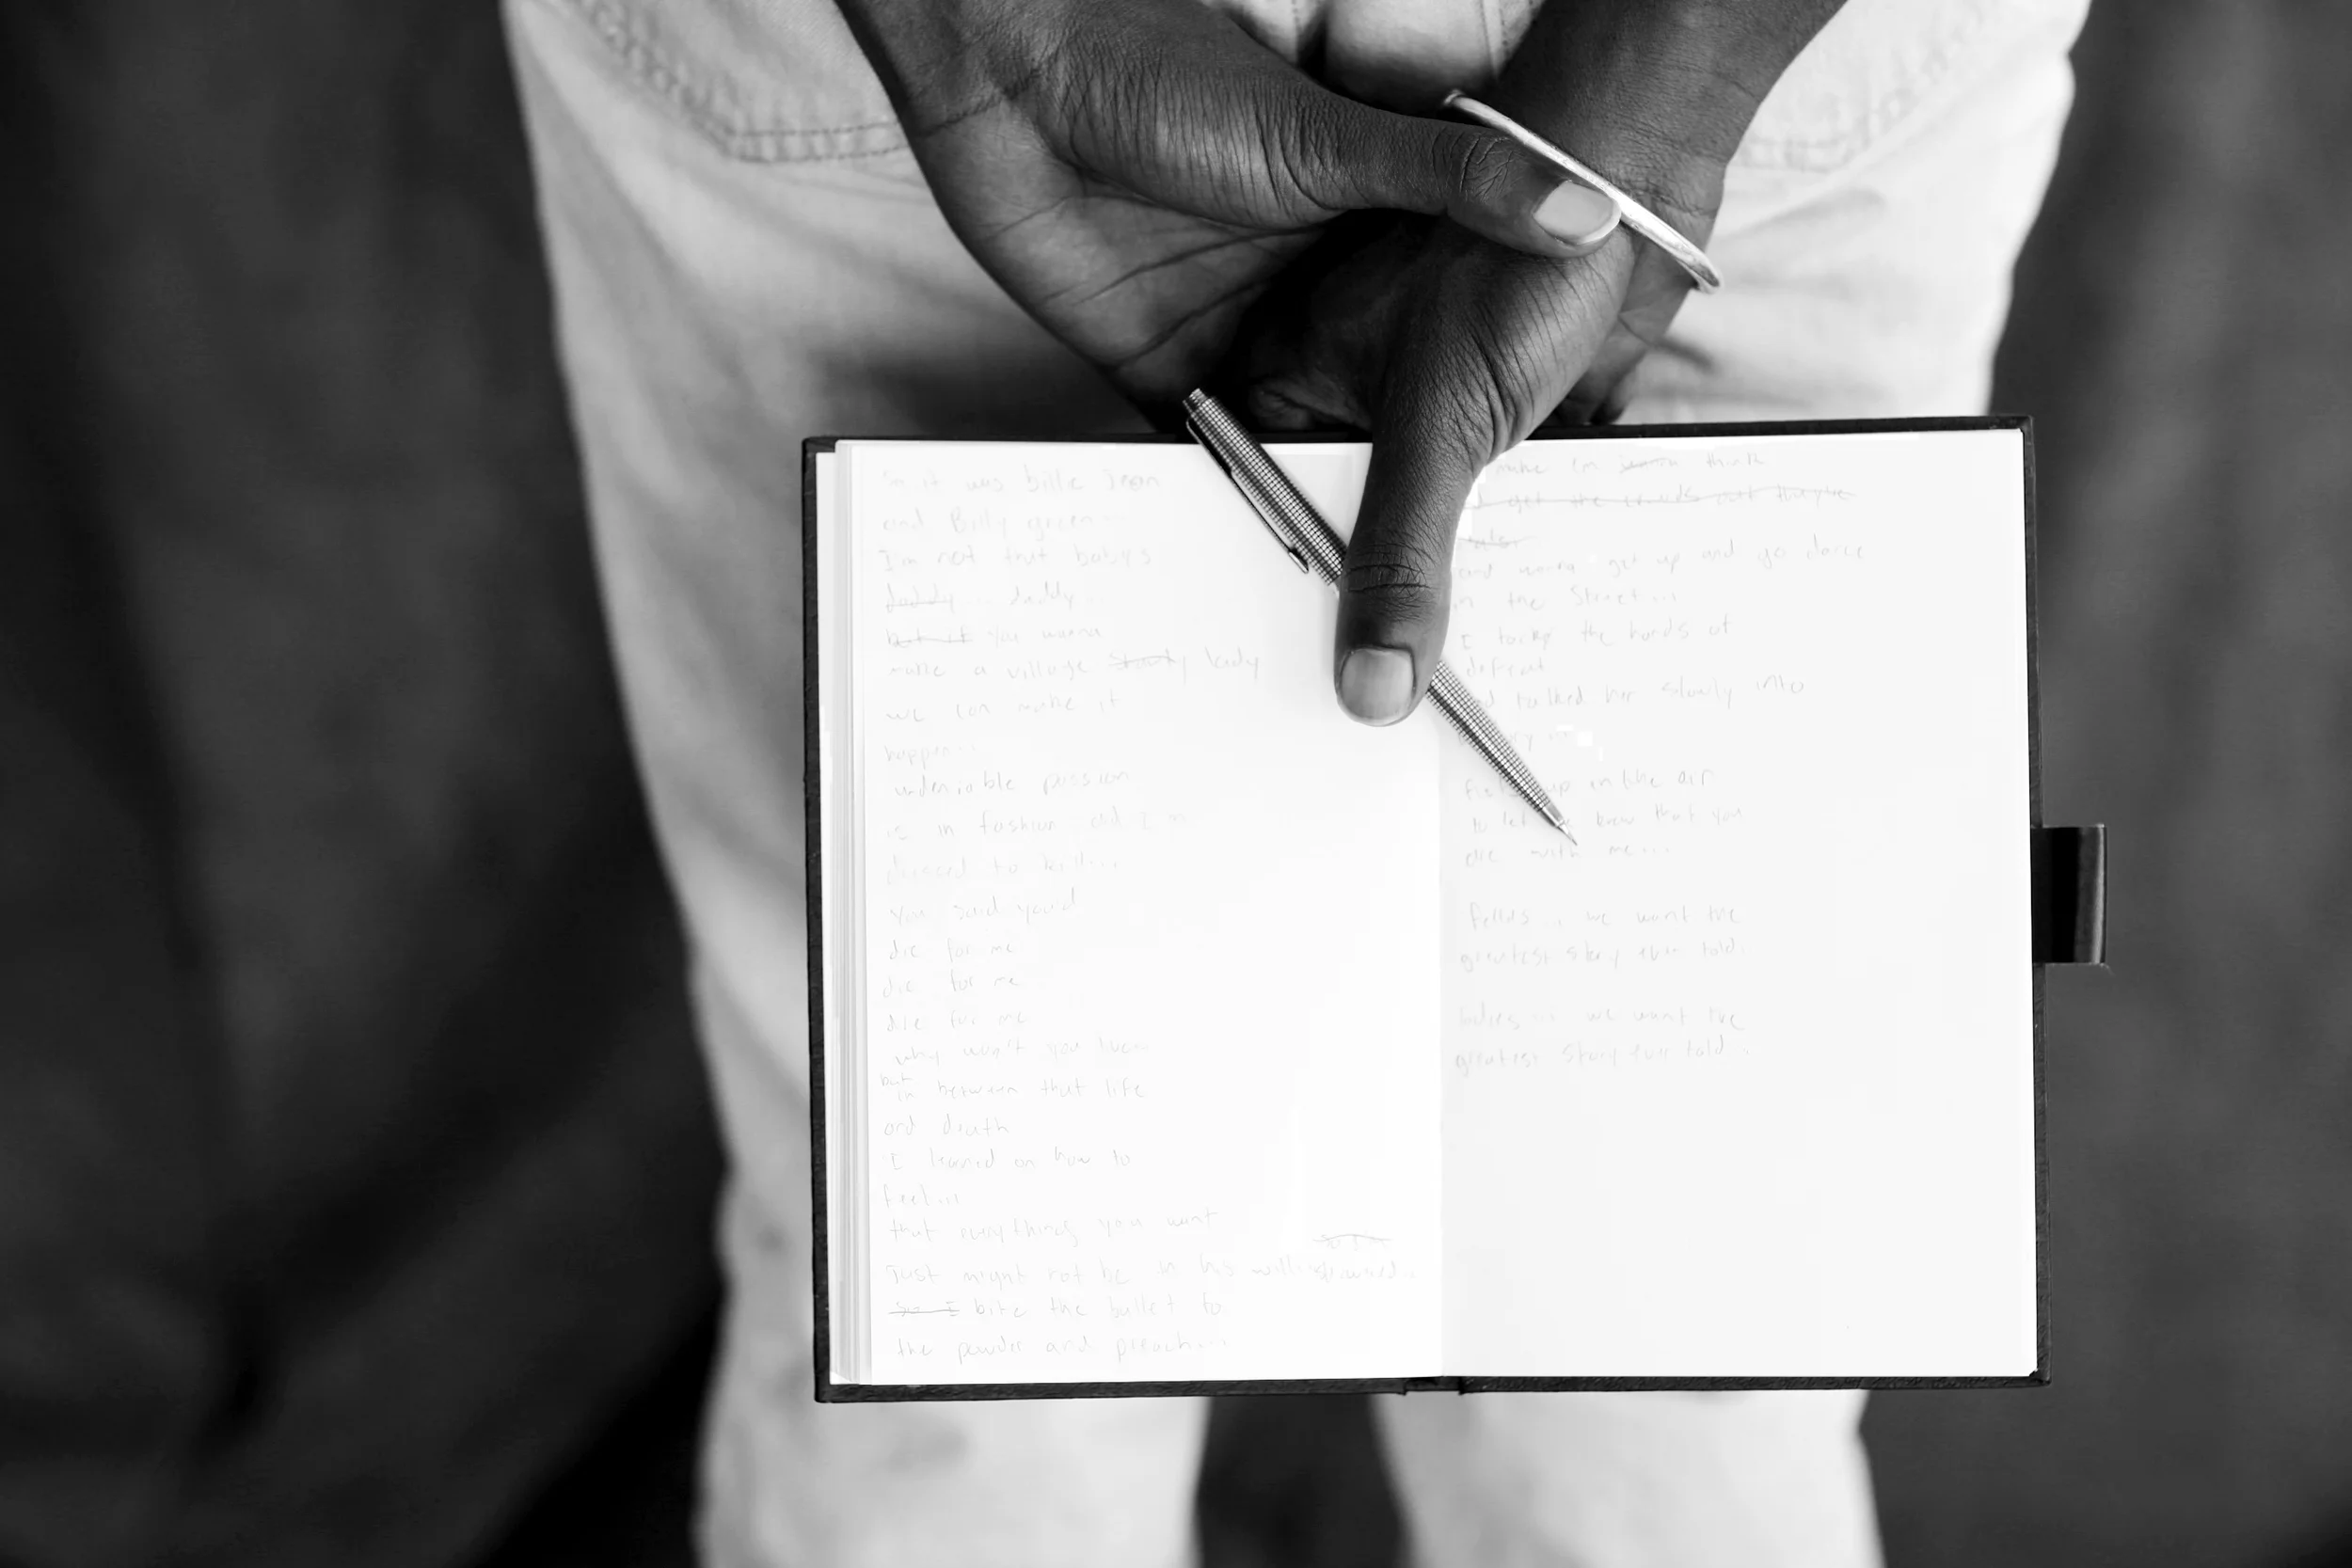 So it was bille Jean
and Billy green...
I'm not that baby's
daddy daddy
but if you wanna
make a village lady
we can make it
happen...
undeniable passion
is in fashion and I'm
dressed to kill...
you said you'd
die for me
die for me
die for me
why won't you
but
in between that life
and death
I learned on how to
feel...
that everything you want
just might not be in his
So I bite the bullet to
the powder and preach...
make em wanna think
get the crowds out they're
and wanna get up and go dance
in the Street...
I the hands of
defeat
talked her slowly into
up in the air
to let know that you
die with me...
fellas... we want the
greatest story ever told.
ladies ... we want the
greatest story ever told.